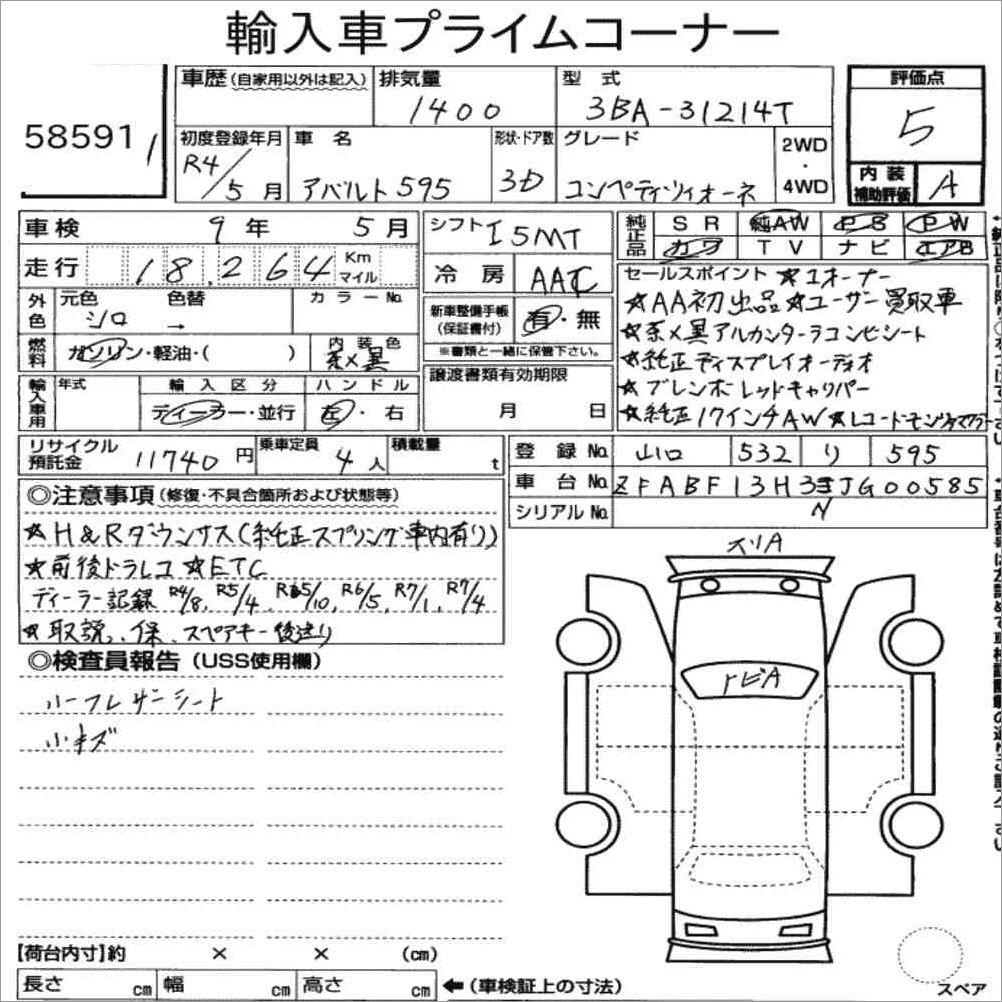 輸入車プライムコーナー
58591
車歴(自家用以外は記入) 排気量 1400 型式 3BA-31214T 評価点 5
初度登録年月 R4/5月 車名 アバルト595 形状・ドア数 3D グレード コンペティツィオーネ 2WD・4WD 内装補助評価 A
車検 9年 5月 シフト I5MT 純正品 SR 純AW PS PW
走行 18,264 Km マイル 冷房 AAC カワ TV ナビ エアB
外色 元色 シロ 色替 → カラーNo. 新車整備手帳(保証書付) 有・無
※書類と一緒に保管下さい。
燃料 ガソリン・軽油・( ) 内装色 茶×黒
セールスポイント ★1オーナー
★AA初出品★ユーザー買取車
★茶×黒アルカンターラコンビシート
★純正ディスプレイオーディオ
★ブレンボレッドキャリパー
★純正17インチAW★レコードモンツァマフラー
輸入車用 年式 輸入区分 ディーラー・並行 ハンドル 左・右 譲渡書類有効期限 月 日
リサイクル預託金 11740円 乗車定員 4人 積載量 t 登録No. 山口 532 り 595
車台No. ZFABF13H3JJG00585
シリアルNo. N
◎注意事項(修復・不具合箇所および状態等)
★H&Rダウンサス(純正スプリング車内有り)
★前後ドラレコ ★ETC
ディーラー記録 R4/8, R5/4, R5/10, R6/5, R7/1, R7/4
★取説、保、スペアキー後送り
◎検査員報告(USS使用欄)
ハーフレザーシート
小キズ
スリA
トビA
【荷台内寸】約 × × (cm)
長さ cm 幅 cm 高さ cm ←(車検証上の寸法)
スペア